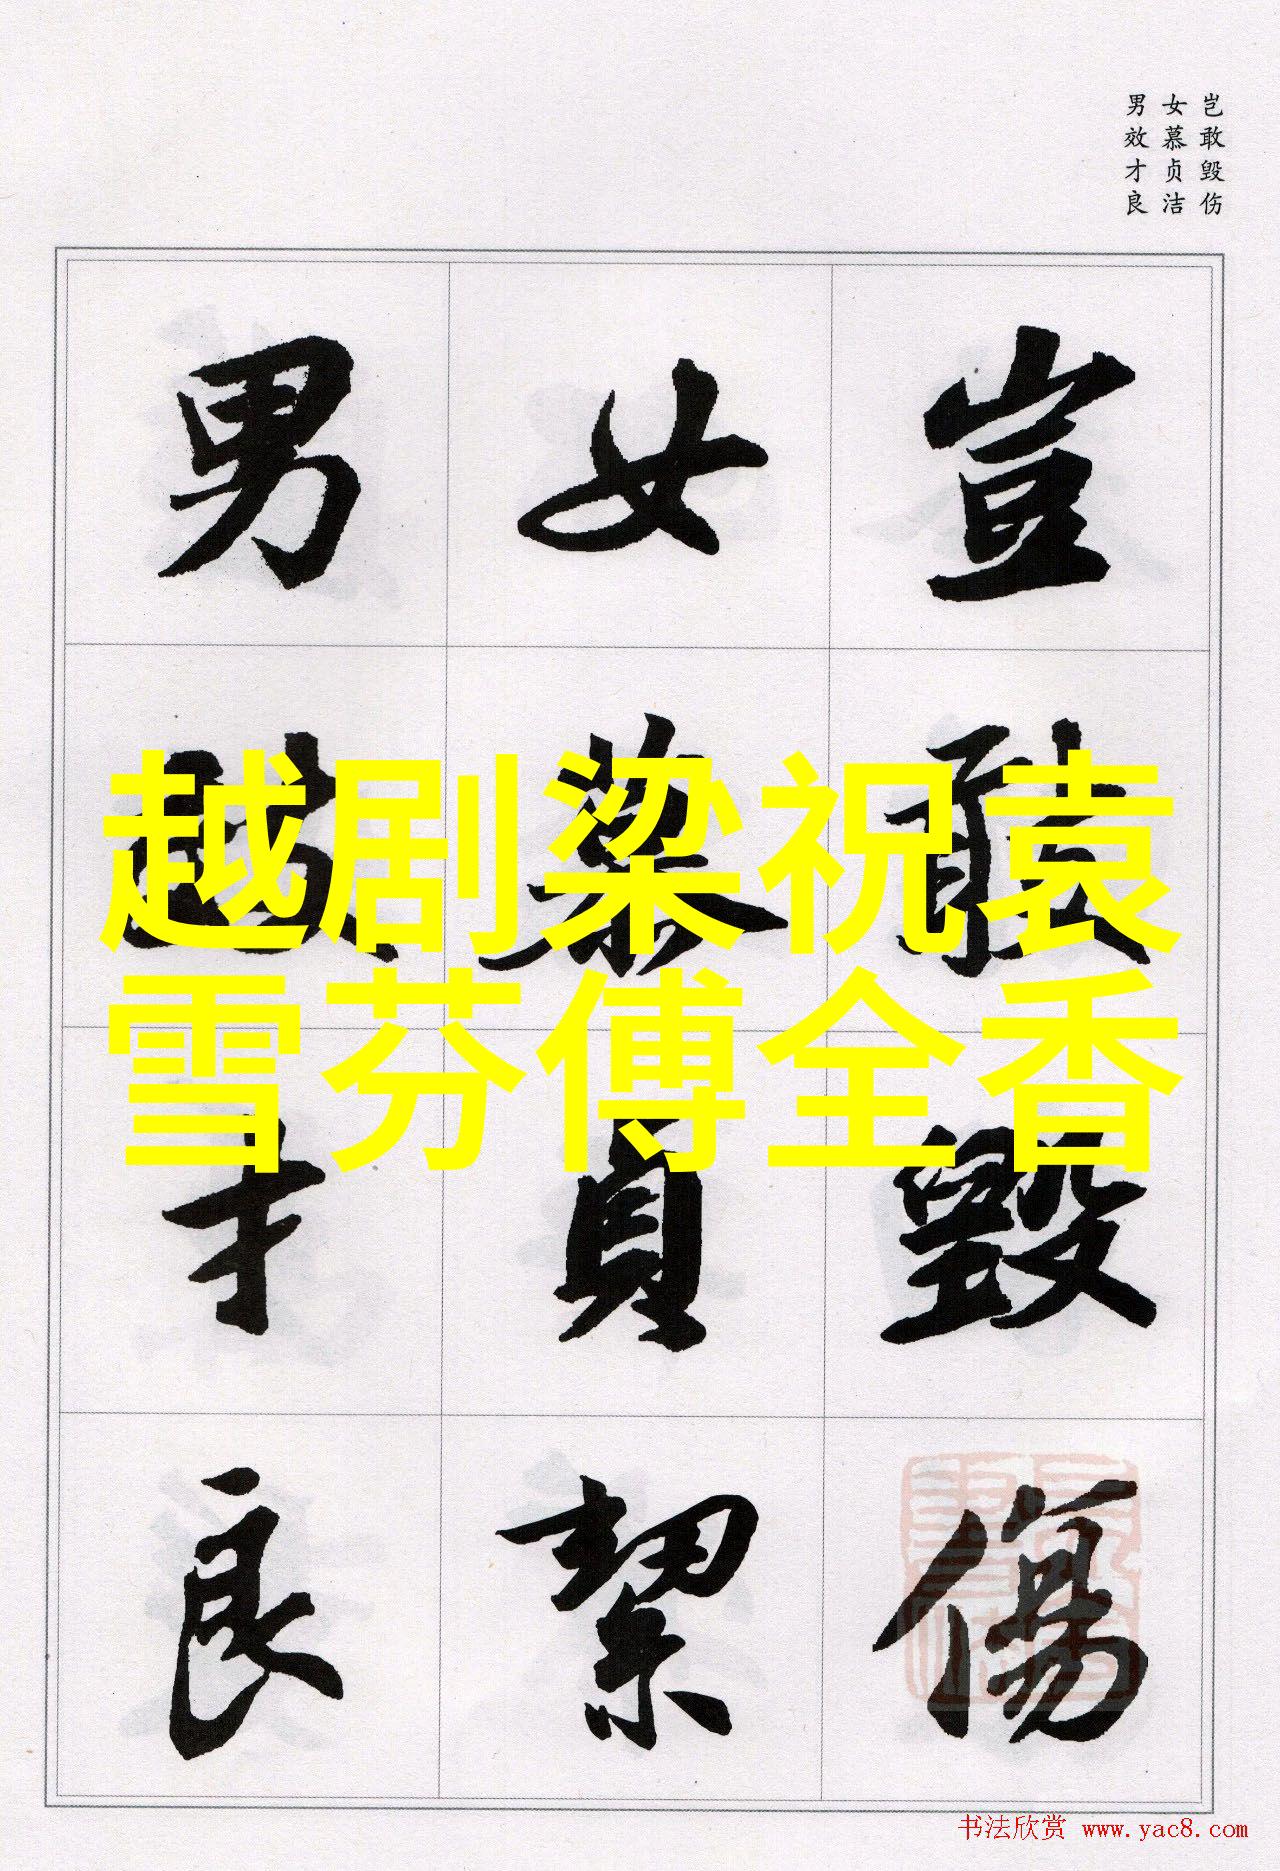 岂敢毁伤
女慕贞洁
男效才良
豈敢毁傷
女慕貞絜
男效才良
越剧梁祝袁
雪芬傅全香
书法欣赏 www.yac8.com